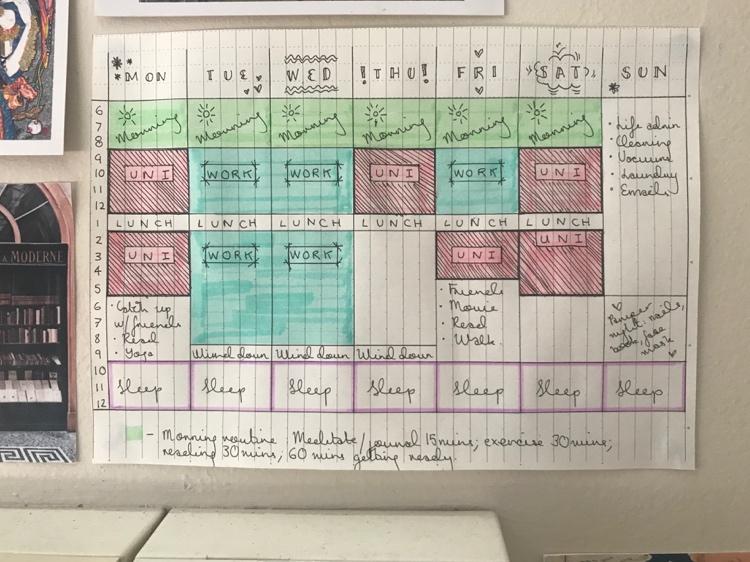 MON TUE WED !THU! FRI SAT SUN
6
7
8
9
10
11
12
1
2
3
4
5
6
7
8
9
10
11
12
Morning Morning Morning Morning Morning Morning
UNI WORK WORK UNI WORK UNI
• Life admin
• Cleaning
• Vacuum
• Laundry
• Emails
LUNCH LUNCH LUNCH LUNCH LUNCH LUNCH
UNI WORK WORK UNI UNI
• Catch up
w/ friends
• Read
• Yoga
• Friends
• Movie
• Read
• Walk
Pamper
night: nails,
book, face
mask
Wind down Wind down Wind down
Sleep Sleep Sleep Sleep Sleep Sleep Sleep
- Morning routine Meditate/journal 15 mins; exercise 30 mins;
reading 30 mins; 60 mins getting ready.
MODERNE